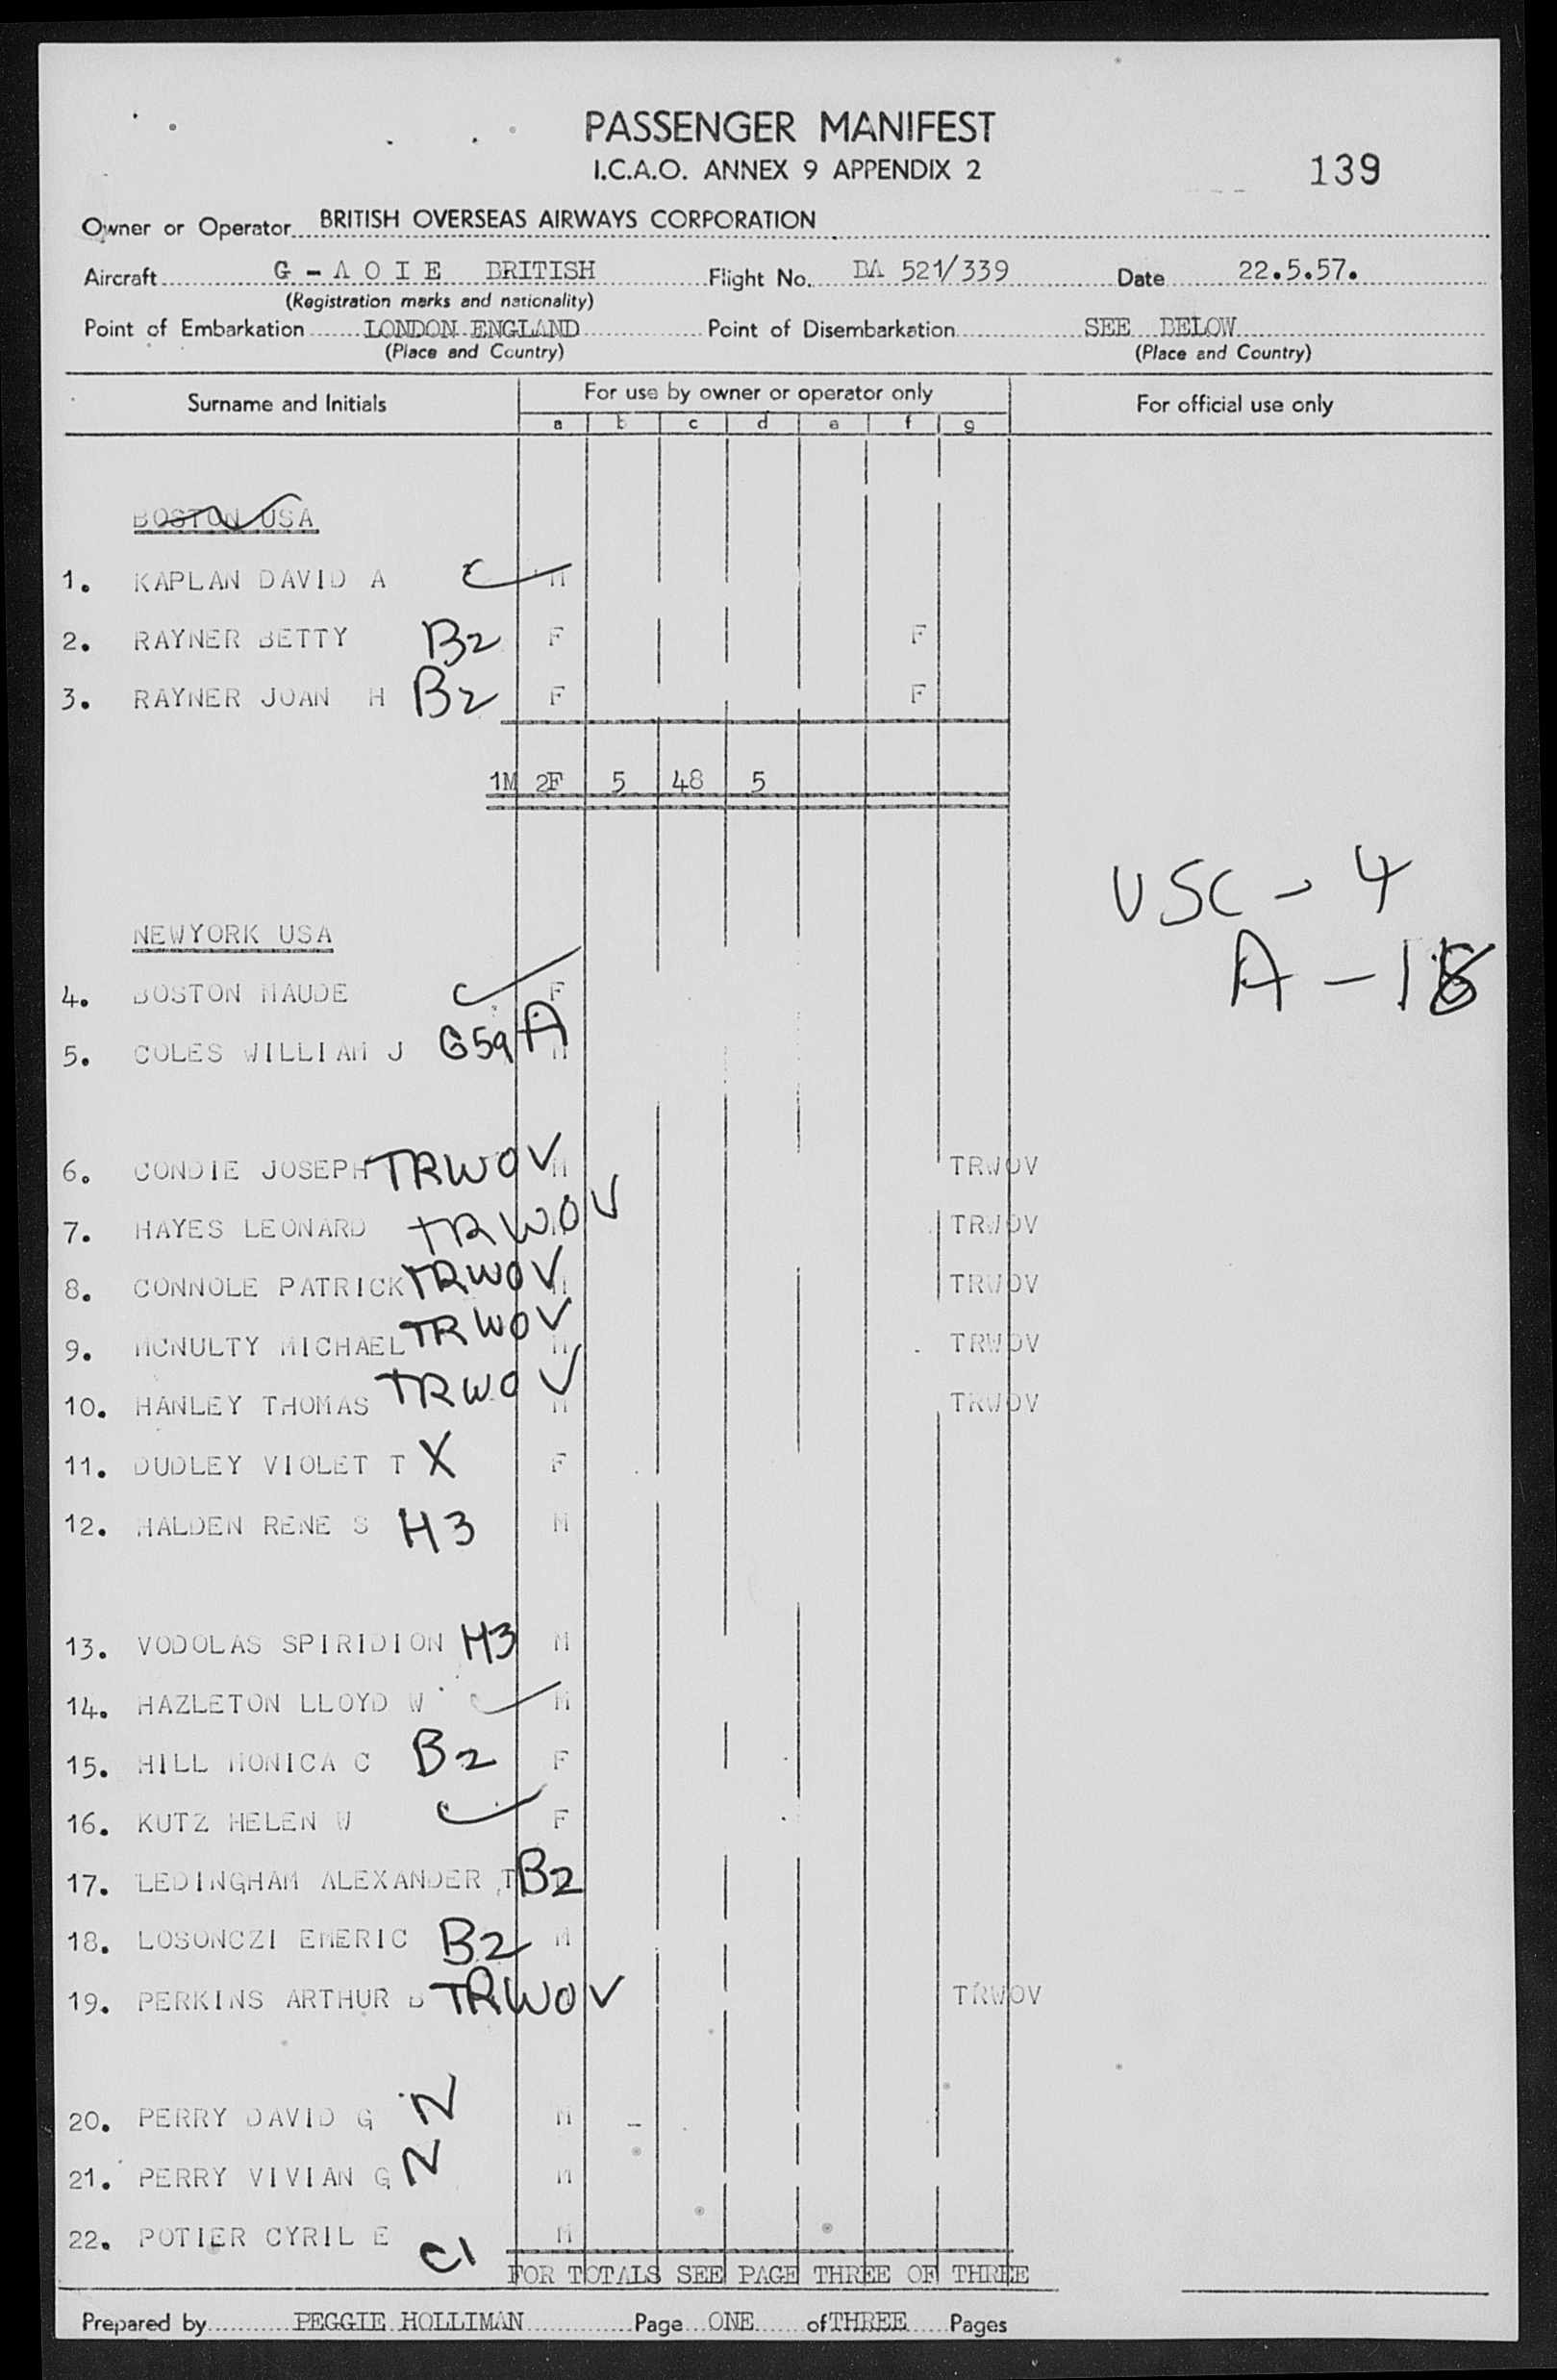 PASSENGER MANIFEST
I.C.A.O. ANNEX 9 APPENDIX 2
139
Owner or Operator BRITISH OVERSEAS AIRWAYS CORPORATION
Aircraft G - A O I E BRITISH Flight No. BA 521/339 Date 22.5.57.
(Registration marks and nationality)
Point of Embarkation LONDON ENGLAND Point of Disembarkation SEE BELOW
(Place and Country) (Place and Country)
Surname and Initials For use by owner or operator only For official use only
a b c d e f g
BOSTON USA
1. KAPLAN DAVID A M
2. RAYNER BETTY B2 F F
3. RAYNER JOAN H B2 F F
1M 2F 5 48 5
USC - 4
NEWYORK USA
A - 18
4. BOSTON MAUDE F
5. COLES WILLIAM J G59A M
6. CONDIE JOSEPH TRWOV M TRWOV
7. HAYES LEONARD TRWOV TRWOV
8. CONNOLE PATRICK TRWOV M TRWOV
9. MCNULTY MICHAEL TRWOV M TRWOV
10. HANLEY THOMAS TRWOV M TRWOV
11. DUDLEY VIOLET T X F
12. HALDEN RENE S H3 M
13. VODOLAS SPIRIDION H3 M
14. HAZLETON LLOYD W M
15. HILL MONICA C B2 F
16. KUTZ HELEN W F
17. LEDINGHAM ALEXANDER T B2
18. LOSONCZI EMERIC B2 M
19. PERKINS ARTHUR B TRWOV TRWOV
20. PERRY DAVID G N M
21. PERRY VIVIAN G N M
22. POTIER CYRIL E C1 M
FOR TOTALS SEE PAGE THREE OF THREE
Prepared by PEGGIE HOLLIMAN Page ONE of THREE Pages